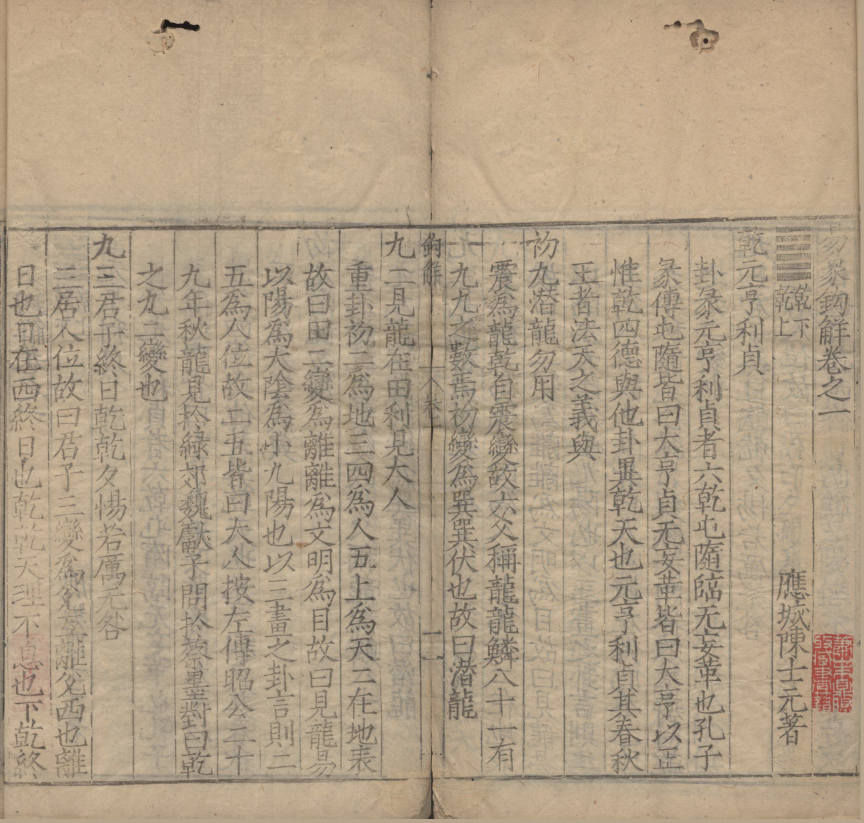 易象鉤解卷之一
應城陳士元著
乾下
乾上
乾元亨利貞
卦彖元亨利貞者六乾屯隨臨无妄革也孔子
彖傳屯隨皆曰大亨貞无妄革皆曰大亨以正
惟乾四德與他卦異乾天也元亨利貞其春秋
王者法天之義與
初九潛龍勿用
震爲龍乾自震變故六爻稱龍龍鱗八十一有
九九之數焉初變爲巽巽伏也故曰潛龍
鉤解
卷一
一
九二見龍在田利見大人
重卦初二爲地三四爲人五上爲天二在地表
故曰田二變爲離離爲文明爲目故曰見龍易
以陽爲大陰爲小九陽也以三畫之卦言則二
五爲人位故二五皆曰大人按左傳昭公二十
九年秋龍見於絳郊魏獻子問於蔡墨對曰乾
之九二變也
九三君子終日乾乾夕惕若厲无咎
三居人位故曰君子三變爲兌互離兌西也離
日也日在西終日也乾乾天理不息也下乾終